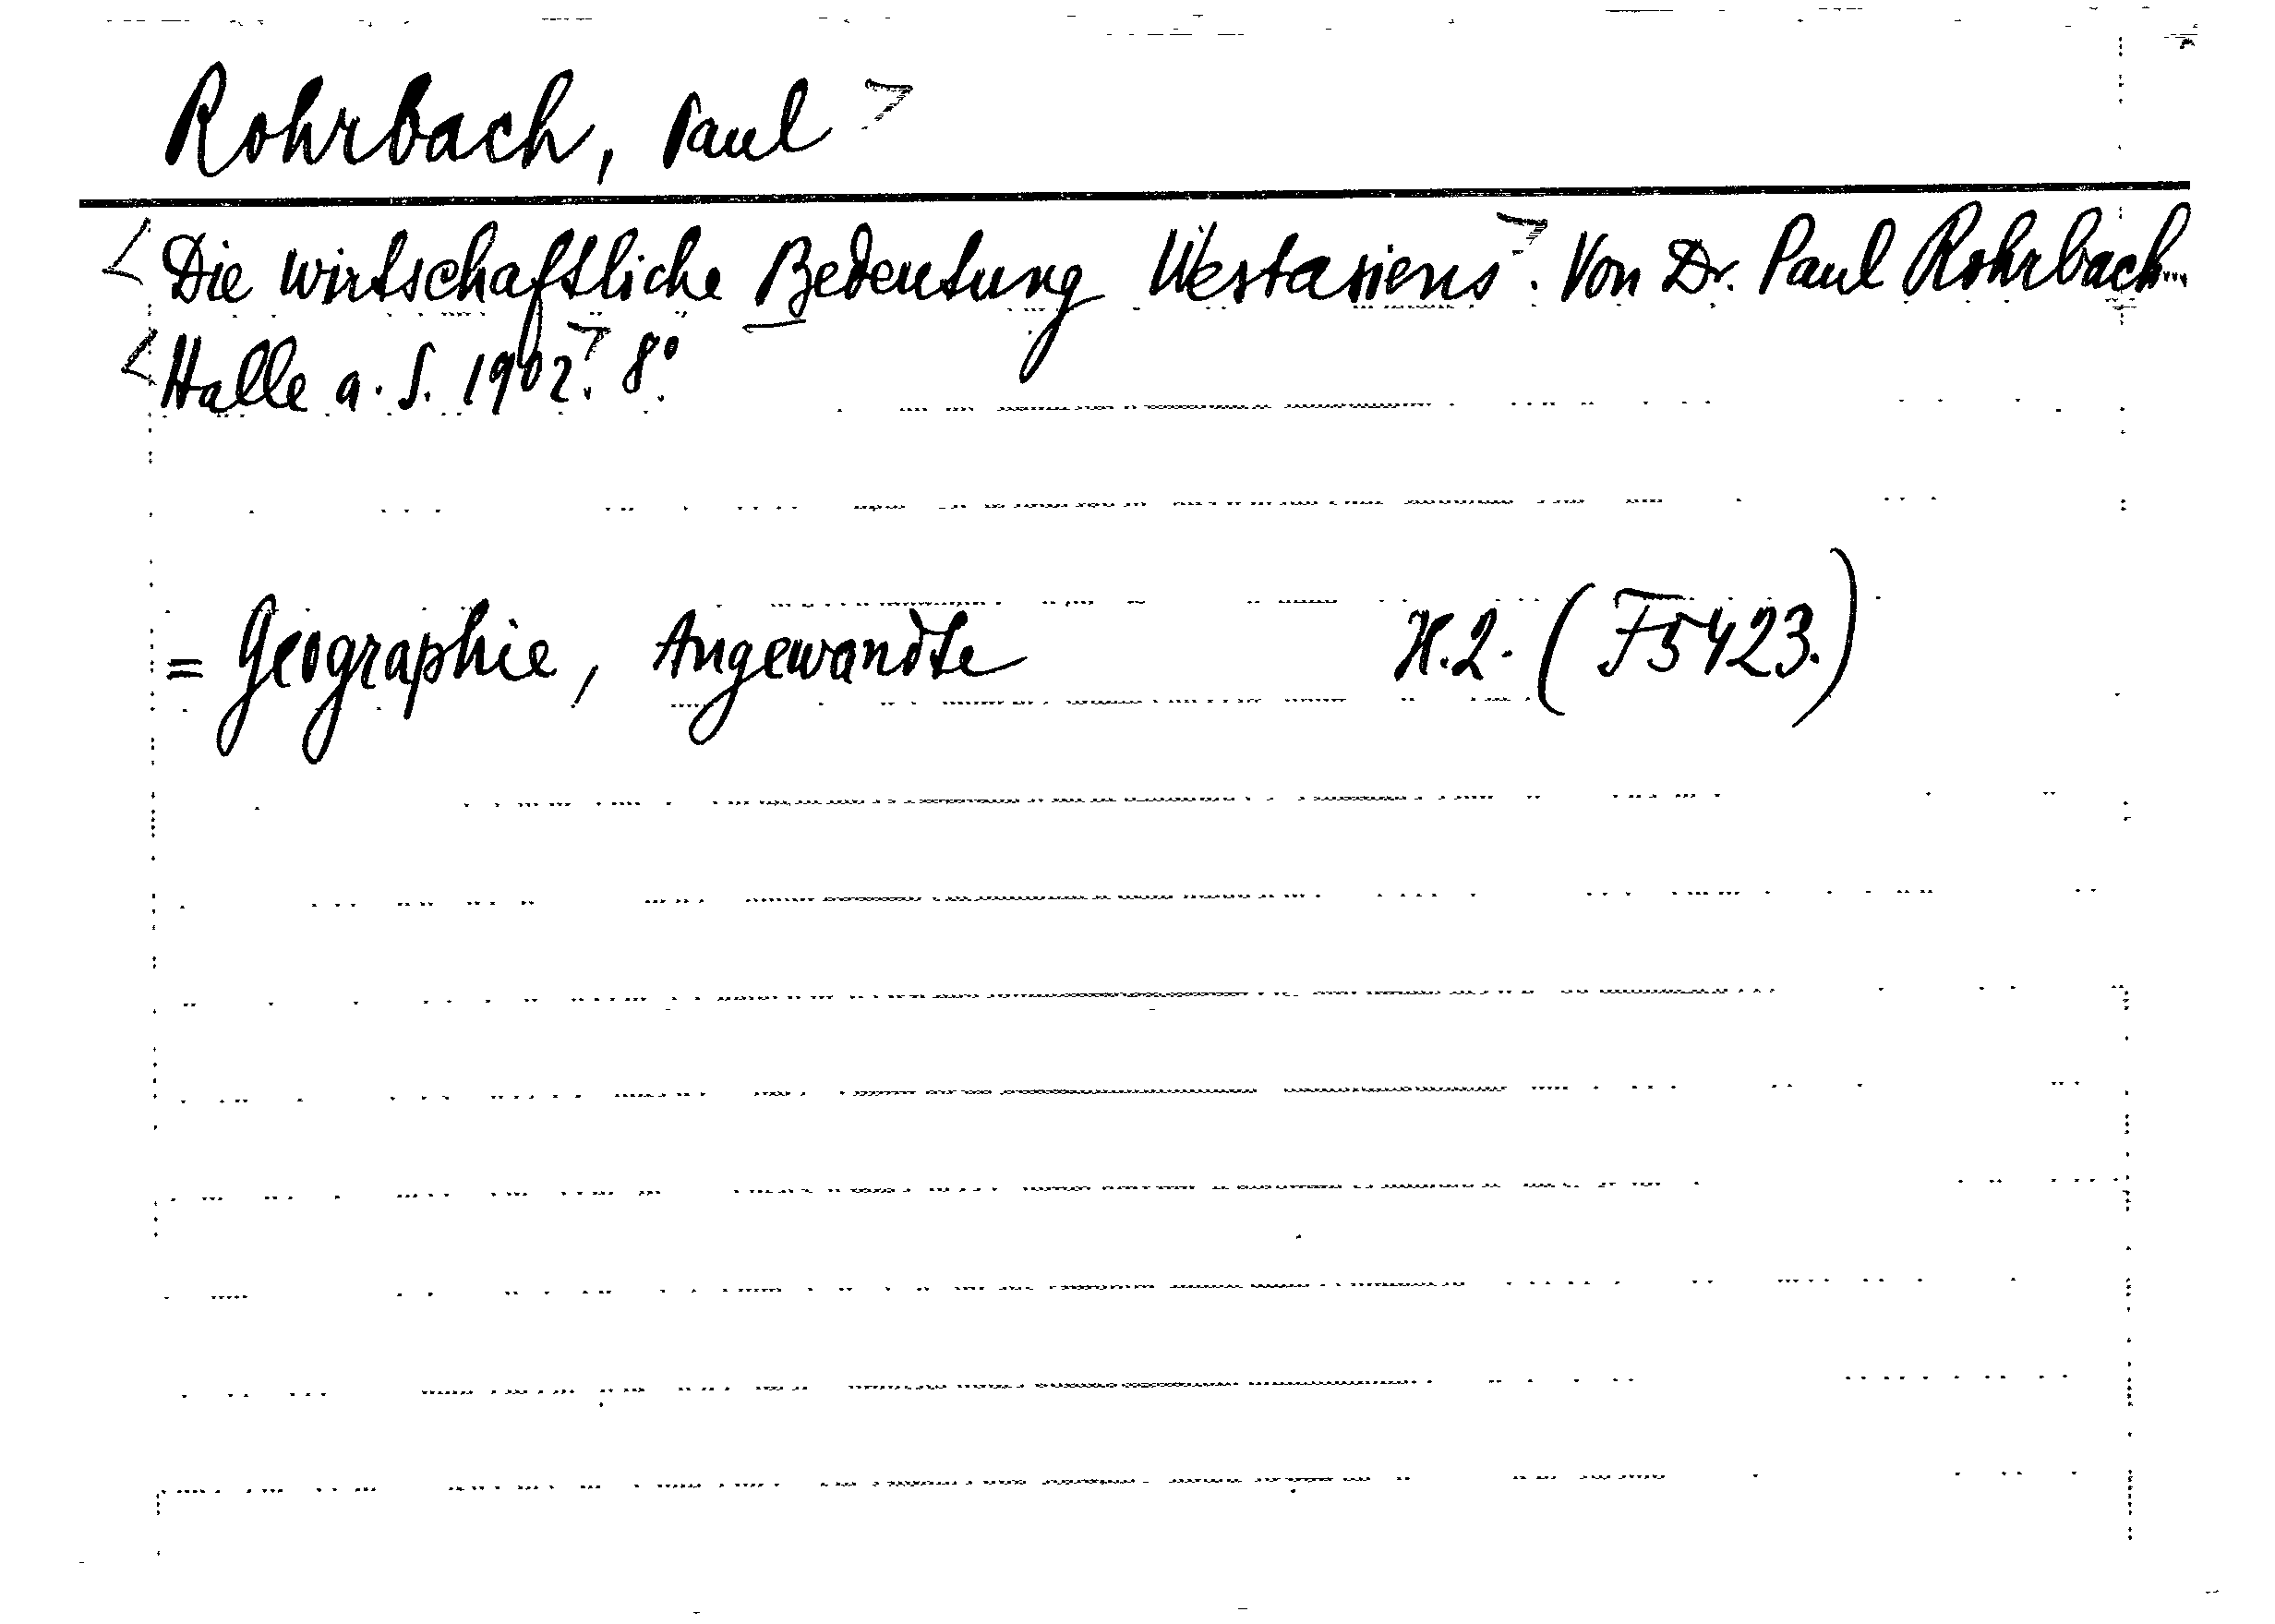 Rohrbach, Paul >
< Die wirtschaftliche Bedeutung Westasiens >. Von Dr. Paul Rohrbach...
< Halle a. S. 1902 >. 8°.
= Geographie, Angewandte H.2. (F5423.)